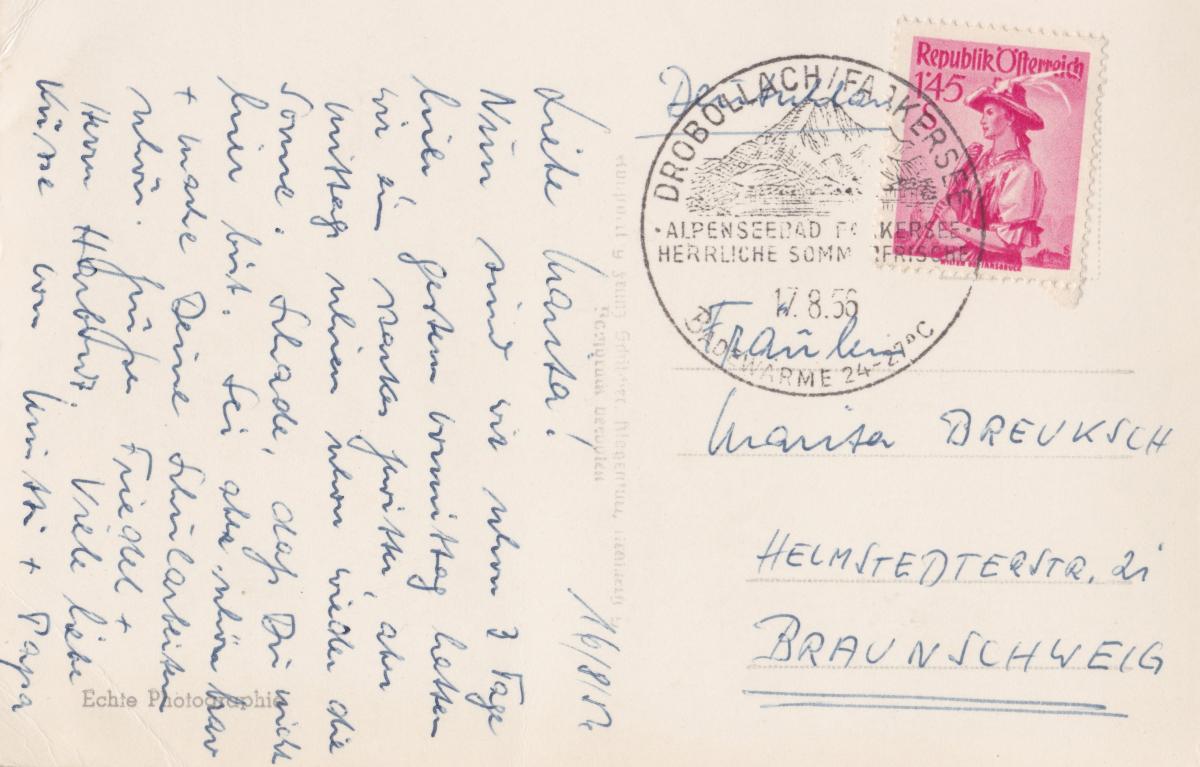 16/8/52
Liebe Marisa!
Nun sind wir schon 3 Tage
hier. Gestern vormittag hatten
wir ein starkes Gewitter aber
mittags schien schon wieder die
Sonne. Schade, daß Du nicht
hier bist. Sei aber schön brav
+ mache Deine Schularbeiten
schön. Grüße Friedel +
Herrn Viele liebe
Küsse von Mutti + Papa
Echte Photographie
Republik Österreich
1'45
DROBOLLACH/FAAKERSEE
·ALPENSEEBAD FAAKERSEE·
HERRLICHE SOMMERFRISCHE
17.8.56
BADEWÄRME 24-27°C
Deutschland
Fräulein
Marisa BREUKSCH
HELMSTEDTERSTR. 21
BRAUNSCHWEIG